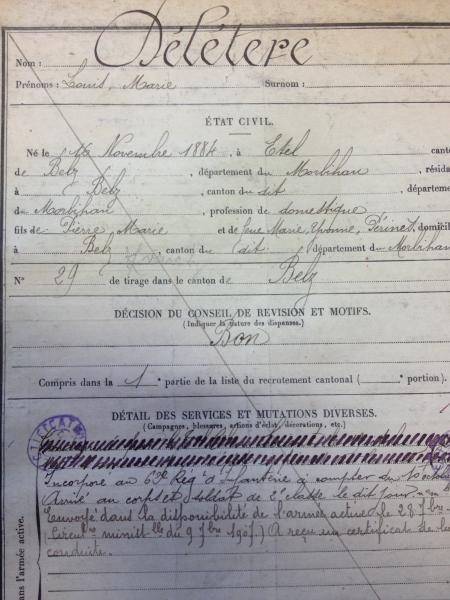 Nom : Délétere
Prénoms : Louis, Marie Surnom :
ÉTAT CIVIL.
Né le 16 Novembre 1884, à Etel cant
de Belz, département du Morbihan, résida
à Belz, canton du dit, départeme
du Morbihan, profession de domestique,
fils de Pierre Marie et de feue Marie Yvonne, Périnet, domicil
à Belz, canton du dit, département du Morbihan
N° 29 de tirage dans le canton de Belz
DÉCISION DU CONSEIL DE REVISION ET MOTIFS.
(Indiquer la nature des dispenses.)
Bon
Compris dans la 1e partie de la liste du recrutement cantonal ( e portion).
DÉTAIL DES SERVICES ET MUTATIONS DIVERSES.
(Campagnes, blessures, actions d'éclat, décorations, etc.)
Incorporé au 62e Rég. d'Infanterie à compter du 10 octob
Arrivé au corps et soldat de 2e classe le dit jour
Envoyé dans la disponibilité de l'armée active le 28 7bre
(Circul. minist. du 9 7bre 1907.) A reçu un certificat de
conduite.
dans l'armée active.